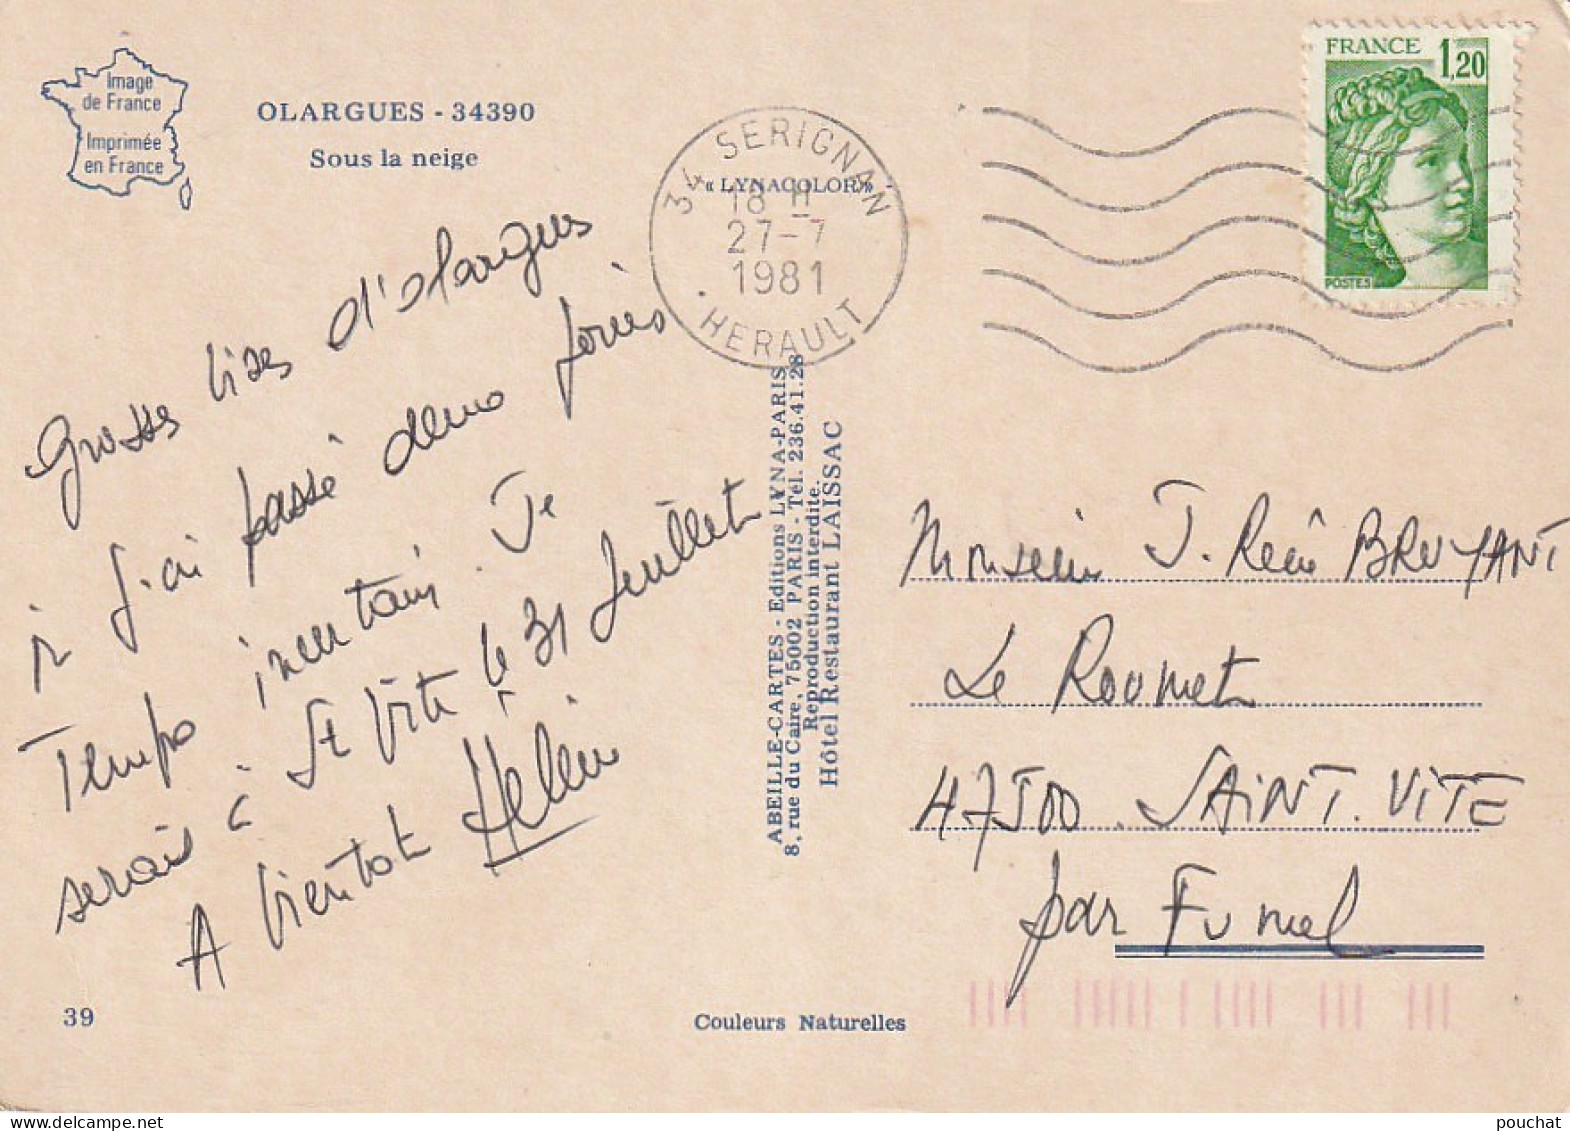 Image
de France
Imprimée
en France
OLARGUES - 34390
Sous la neige
« LYNACOLOR »
34 SERIGNAN
18 H
27-7
1981
HERAULT
FRANCE 1,20
POSTES
Grosses bises d'olargues
où j'ai passé deux jours
Temps incertain. Je
serais à St Vite le 31 Juillet
A bientot Hélène
ABEILLE-CARTES - Editions LYNA-PARIS
8, rue du Caire, 75002 PARIS - Tél. 236.41.28
Reproduction interdite.
Hôtel Restaurant LAISSAC
Monsieur J. René BRUYANT
Le Roumet
47500. SAINT. VITE
par Fumel
39
Couleurs Naturelles
pouchat